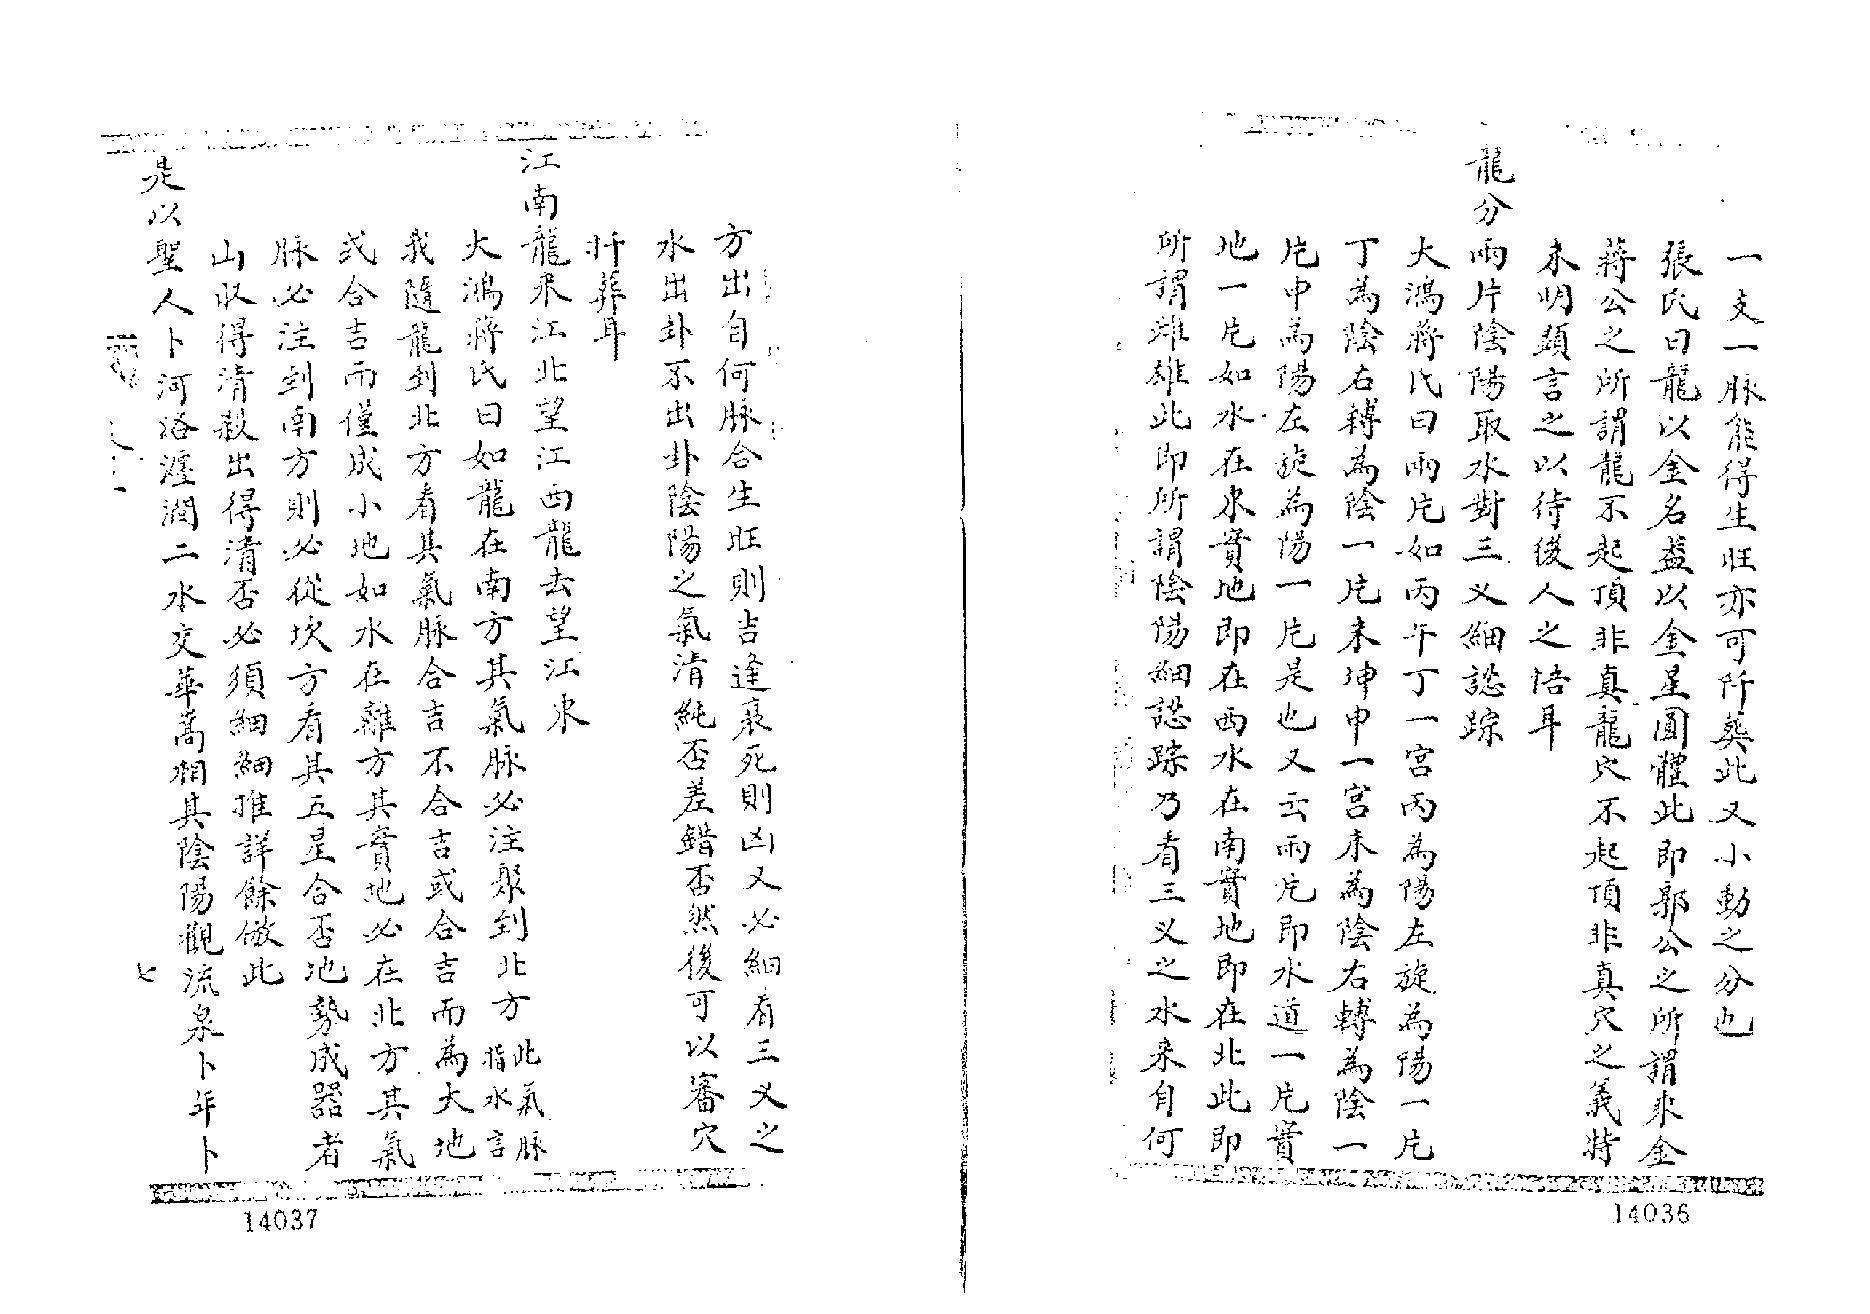 一支一脉能得生旺亦可阡葬此又小動之分也
張氏曰龍以金名葢以金星圓體此即郭公之所謂來金
蔣公之所謂龍不起頂非真龍穴不起頂非真穴之義特
未明顕言之以待後人之悟耳
龍分兩片陰陽取水對三义細認踪
大鴻蔣氏曰兩片如丙午丁一宮丙為陽左旋為陽一片
丁為陰右轉為陰一片未坤申一宮未為陰右轉為陰一
片申為陽左旋為陽一片是也又云兩片即水道一片實
地一片如水在東實地即在西水在南實地即在北此即
所謂雌雄此即所謂陰陽細認踪乃看三义之水来自何
14036
方出自何脉合生旺則吉逢衰死則凶又必細看三义之
水出卦不出卦陰陽之氣清純否差錯否然後可以審穴
扦葬耳
江南龍來江北望江西龍去望江東
大鴻蔣氏曰如龍在南方其氣脉必注聚到北方此氣脉指水言
我隨龍到北方看其氣脉合吉不合吉或合吉而為大地
或合吉而僅成小地如水在離方其實地必在北方其氣
脉必注到南方則必從坎方看其五星合否地勢成器者
山収得清殺出得清否必須細細推詳餘倣此
是以聖人卜河洛瀍澗二水交華嵩相其陰陽觀流泉卜年卜
七
14037